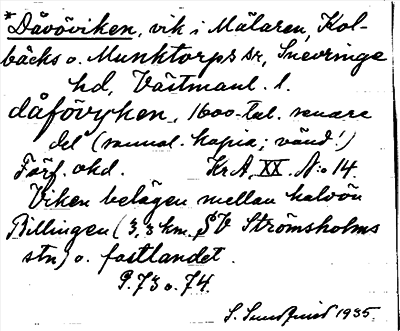 *Dåvöviken, vik i Mälaren, Kol-
bäcks o. Munktorps sr, Snevringe
hd, Västmanl. l.
dåföwyken, 1600-tal. senare
del (samml. kopia; vänd!)
Förf. okd. Kr A, XX. No 14.
Viken belägen mellan halvön
Billingen (3,3 km. SV Strömsholms
stn) o. fastlandet.
P. 73 o. 74.
S. Sundqvist 1935.